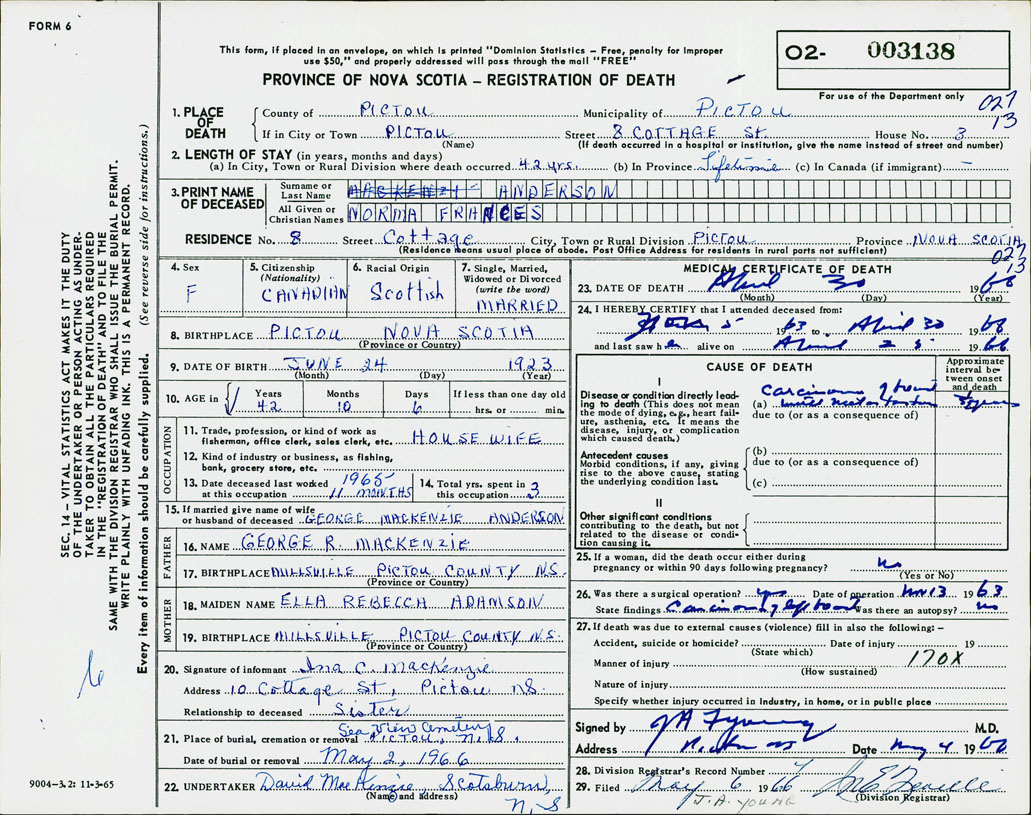 FORM 6
This form, if placed in an envelope, on which is printed "Dominion Statistics – Free, penalty for improper
use $50," and properly addressed will pass through the mail "FREE"
PROVINCE OF NOVA SCOTIA – REGISTRATION OF DEATH
02- 003138
For use of the Department only
027
13
1. PLACE OF DEATH
County of PICTOU Municipality of PICTOU
If in City or Town PICTOU Street 8 COTTAGE St. House No. 3
(Name) (If death occurred in a hospital or institution, give the name instead of street and number)
2. LENGTH OF STAY (in years, months and days)
(a) In City, Town or Rural Division where death occurred 42 yrs. (b) In Province Lifetime (c) In Canada (if immigrant) –
3. PRINT NAME OF DECEASED
Surname or Last Name MACKENZIE ANDERSON
All Given or Christian Names NORMA FRANCES
RESIDENCE No. 8 Street Cottage City, Town or Rural Division PICTOU Province NOVA SCOTIA
(Residence means usual place of abode. Post Office Address for residents in rural parts not sufficient)
027
13
4. Sex
F
5. Citizenship
(Nationality)
CANADIAN
6. Racial Origin
Scottish
7. Single, Married,
Widowed or Divorced
(write the word)
MARRIED
8. BIRTHPLACE PICTOU NOVA SCOTIA
(Province or Country)
9. DATE OF BIRTH JUNE 24 1923
(Month) (Day) (Year)
10. AGE in Years Months Days If less than one day old
42 10 6 hrs. or min.
OCCUPATION
11. Trade, profession, or kind of work as
fisherman, office clerk, sales clerk, etc. HOUSE WIFE
12. Kind of industry or business, as fishing,
bank, grocery store, etc.
13. Date deceased last worked 1965
at this occupation 11 MONTHS
14. Total yrs. spent in
this occupation 3
15. If married give name of wife
or husband of deceased GEORGE MACKENZIE ANDERSON
FATHER
16. NAME GEORGE R. MACKENZIE
17. BIRTHPLACE MILLSVILLE PICTOU COUNTY N.S.
(Province or Country)
MOTHER
18. MAIDEN NAME ELLA REBECCA ADAMSON
19. BIRTHPLACE MILLSVILLE PICTOU COUNTY N.S.
(Province or Country)
20. Signature of informant Ina C. MacKenzie
Address 10 Cottage St, Pictou NS.
Relationship to deceased Sister
Sea View Cemetery
21. Place of burial, cremation or removal PICTOU, N.S.
Date of burial or removal May 2, 1966
22. UNDERTAKER David MacKenzie, Scotsburn,
(Name and address) N, S
MEDICAL CERTIFICATE OF DEATH
23. DATE OF DEATH April 30 1966
(Month) (Day) (Year)
24. I HEREBY CERTIFY that I attended deceased from:
5 1963 to April 30 1966
and last saw her alive on April 25 1966
CAUSE OF DEATH
Approximate
interval be-
tween onset
and death
I
Disease or condition directly lead-
ing to death (This does not mean
the mode of dying, e.g., heart fail-
ure, asthenia, etc. It means the
disease, injury, or complication
which caused death.)
Carcinoma of breast
(a) 3 years
due to (or as a consequence of)
Antecedent causes
Morbid conditions, if any, giving
rise to the above cause, stating
the underlying condition last.
(b)
due to (or as a consequence of)
(c)
II
Other significant conditions
contributing to the death, but not
related to the disease or condi-
tion causing it.
25. If a woman, did the death occur either during
pregnancy or within 90 days following pregnancy? no
(Yes or No)
26. Was there a surgical operation? yes Date of operation Nov 13 1963
State findings Carcinoma of left breast Was there an autopsy? no
27. If death was due to external causes (violence) fill in also the following: –
Accident, suicide or homicide? Date of injury 19
(State which) 170X
Manner of injury
(How sustained)
Nature of injury
Specify whether injury occurred in industry, in home, or in public place
Signed by J A Young M.D.
Address Pictou NS Date May 4 1966
28. Division Registrar's Record Number 7
29. Filed May 6 1966
(Division Registrar)
J.A. YOUNG
SEC. 14 – VITAL STATISTICS ACT MAKES IT THE DUTY
OF THE UNDERTAKER OR PERSON ACTING AS UNDER-
TAKER TO OBTAIN ALL THE PARTICULARS REQUIRED
IN THE "REGISTRATION OF DEATH" AND TO FILE THE
SAME WITH THE DIVISION REGISTRAR WHO SHALL ISSUE THE BURIAL PERMIT.
WRITE PLAINLY WITH UNFADING INK. THIS IS A PERMANENT RECORD.
Every item of information should be carefully supplied. (See reverse side for instructions.)
9004-3.2: 11-3-65